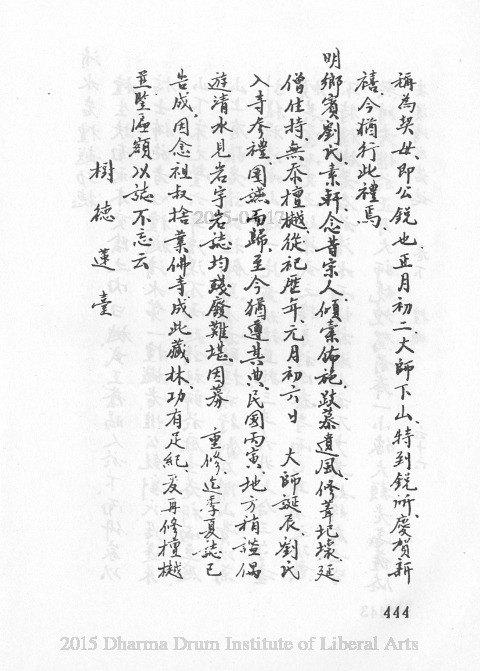 稱為契母、即公銳也、正月初二大師下山、特到銳所、慶賀新
禧、今猶行此禮焉、
明鄉賓劉氏素軒、念昔宗人傾囊佈施、跂慕遺風、修葺圮壞、延
僧住持、無忝檀樾、從祀歷年、元月初六日 大師誕辰、劉氏
入寺參禮、團讌而歸、至今猶遵其典、民國丙寅、地方稍謐、偶
遊清水、見岩宇岩誌、均殘廢難堪、因募 重修、迄季夏誌已
告成、因念祖叔捨業佛寺、成此藏林、功有足紀、爰再修檀樾
並豎匾額、以誌不忘云
樹德蓮臺
444
2015 Dharma Drum Institute of Liberal Arts